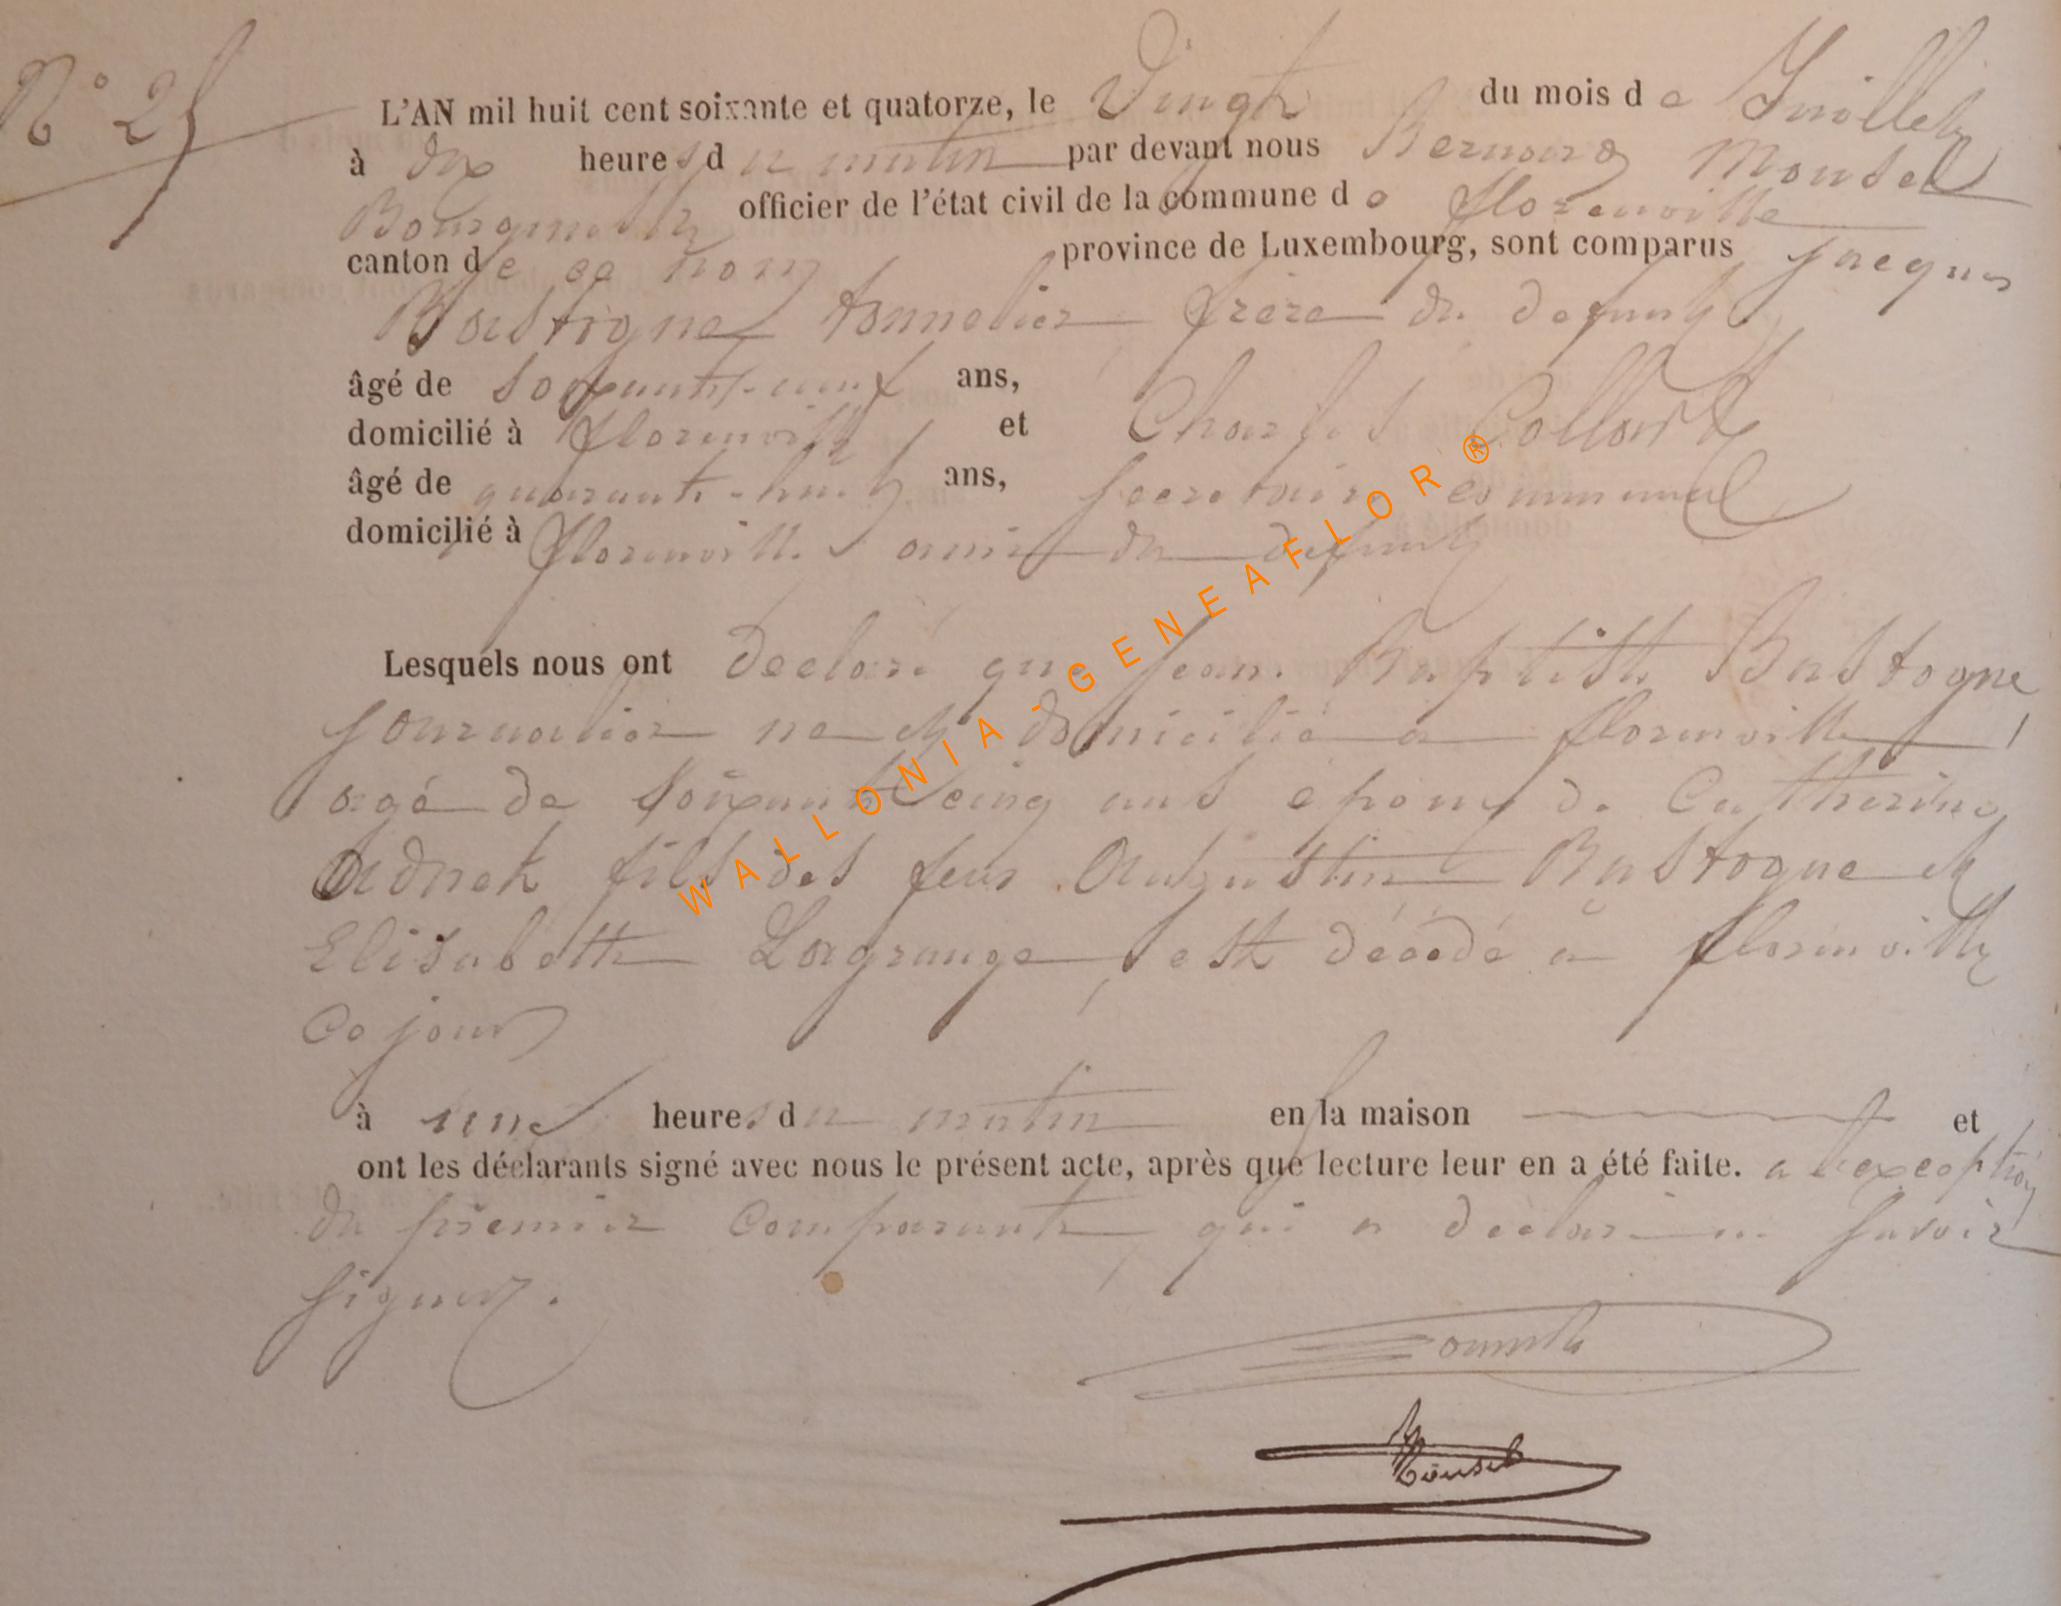 N° 25
L'AN mil huit cent soixante et quatorze, le Vingt du mois de Juillet
à dix heures du matin par devant nous Bernard Mousel
Bourgmestre officier de l'état civil de la commune de florenville
canton de ce nom province de Luxembourg, sont comparus Jacques
Bastogne tonnelier frère du defunt
âgé de soixante-neuf ans,
domicilié à florenville et Charles Collart
âgé de quarante-huit ans, secretaire communal
domicilié à florenville ami du defunt
Lesquels nous ont declaré que Jean Baptiste Bastogne,
journalier né et domicilié à florenville,
agé de soixante cinq ans epoux de Catherine
Adnet fils des feus Augustin Bastogne et
Elisabeth Lagrange, est décédé à florenville
Ce jour
à une heures du matin en la maison et
ont les déclarants signé avec nous le présent acte, après que lecture leur en a été faite. a l'exception
du premier comparant, qui a déclaré ne savoir
signer.
Mousel
WALLONIA-GENEAFLOR®